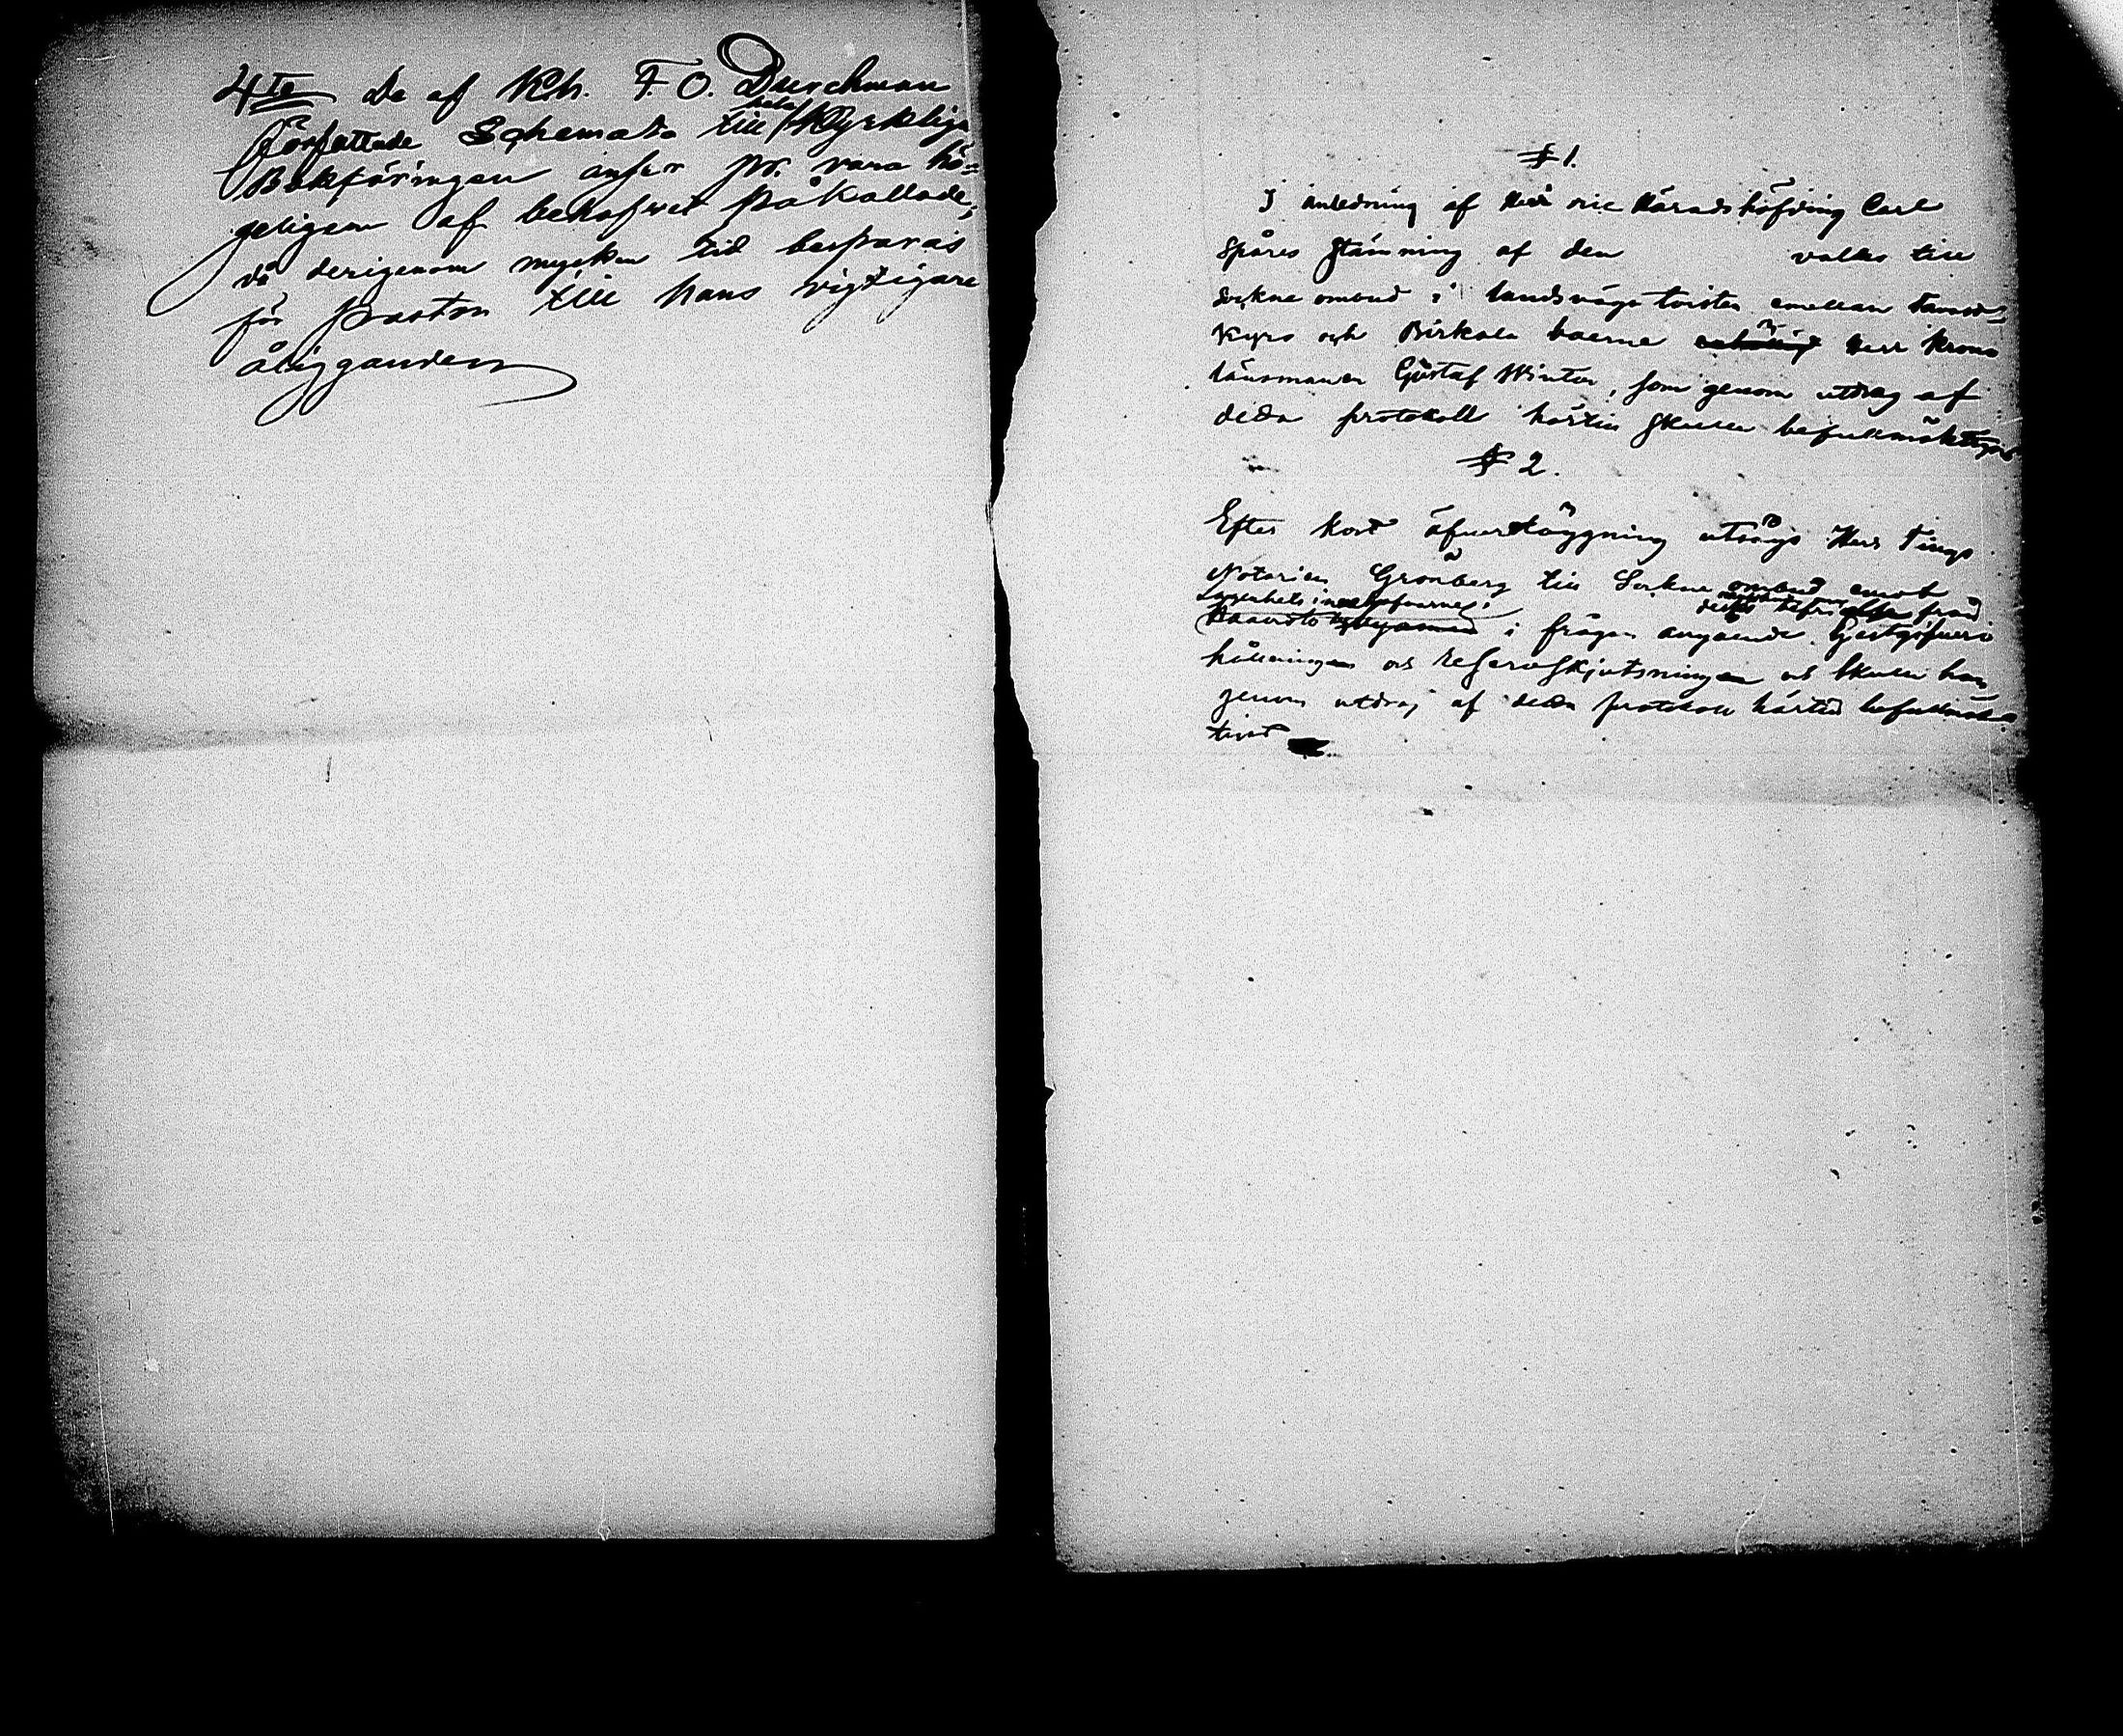 4te De af Kh. F. O. Durchman
författade Schemata till hela Kyrkliga
Bokföringen anser pr. vara hö=
geligen af behofvet påkallade,
då derigenom mycken tid besparas
för pastor till hans vigtigare
åligganden
§ 1.
I anledning af Herr vice Häradshöfding Carl
Spåres stämning af den valdes till
Sockne ombud i landsvägs tvisten emellan Tavast=
kyro och Birkala boerne Herr Krono
länsmannen Gustaf Winter, som genom utdrag af
detta protokoll härtill skulle befullmäktigas
§ 2.
Efter kort öfverläggning utsågs Herr Tings
Notarien Grönberg till Sockne ombud emot
Lägenhets innehafvarne i
deras befrielse från
i frågan angående Gestgifveri
hållningen och reservskjutsningen och skulle han
genom utdrag af detta protokoll härtill befullmäk
tigad